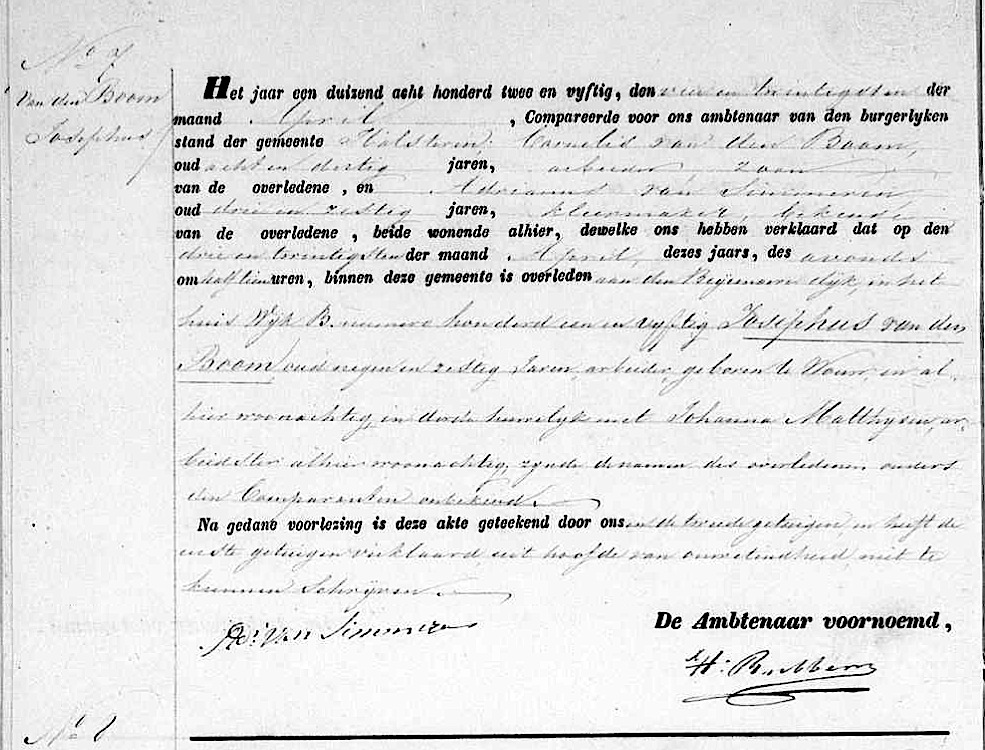 No 7
Van den Boom
Josephus
Het jaar een duizend acht honderd twee en vyftig, den vier en twintigsten der
maand April, Compareerde voor ons ambtenaar van den burgerlyken
stand der gemeente Halsteren: Cornelis van den Boom,
oud acht en dertig jaren, arbeider, zoon
van de overledene, en Adrianus van Simmeren
oud drie en zestig jaren, kleermaker, bekende
van de overledene, beide wonende alhier, dewelke ons hebben verklaard dat op den
drie en twintigsten der maand April, dezes jaars, des avonds
om half tien uren, binnen deze gemeente is overleden aan den dyk, in het
huis Wyk B. nummero honderd een en vyftig Josephus van den
Boom, oud negen en zestig Jaren, arbeider, geboren te Wouw, en al
hier woonachtig, in derde huwelyk met Johanna Matthysen, ar-
beidster alhier woonachtig, zynde de namen des overledenen ouders
den Comparanten onbekend.
Na gedane voorlezing is deze akte geteekend door ons en de tweede getuigen, en heeft de
eerste getuigen verklaard, uit hoofde van onwetendheid, niet te
kunnen Schryven
Adr. van Simmeren
De Ambtenaar voornoemd,
No 8